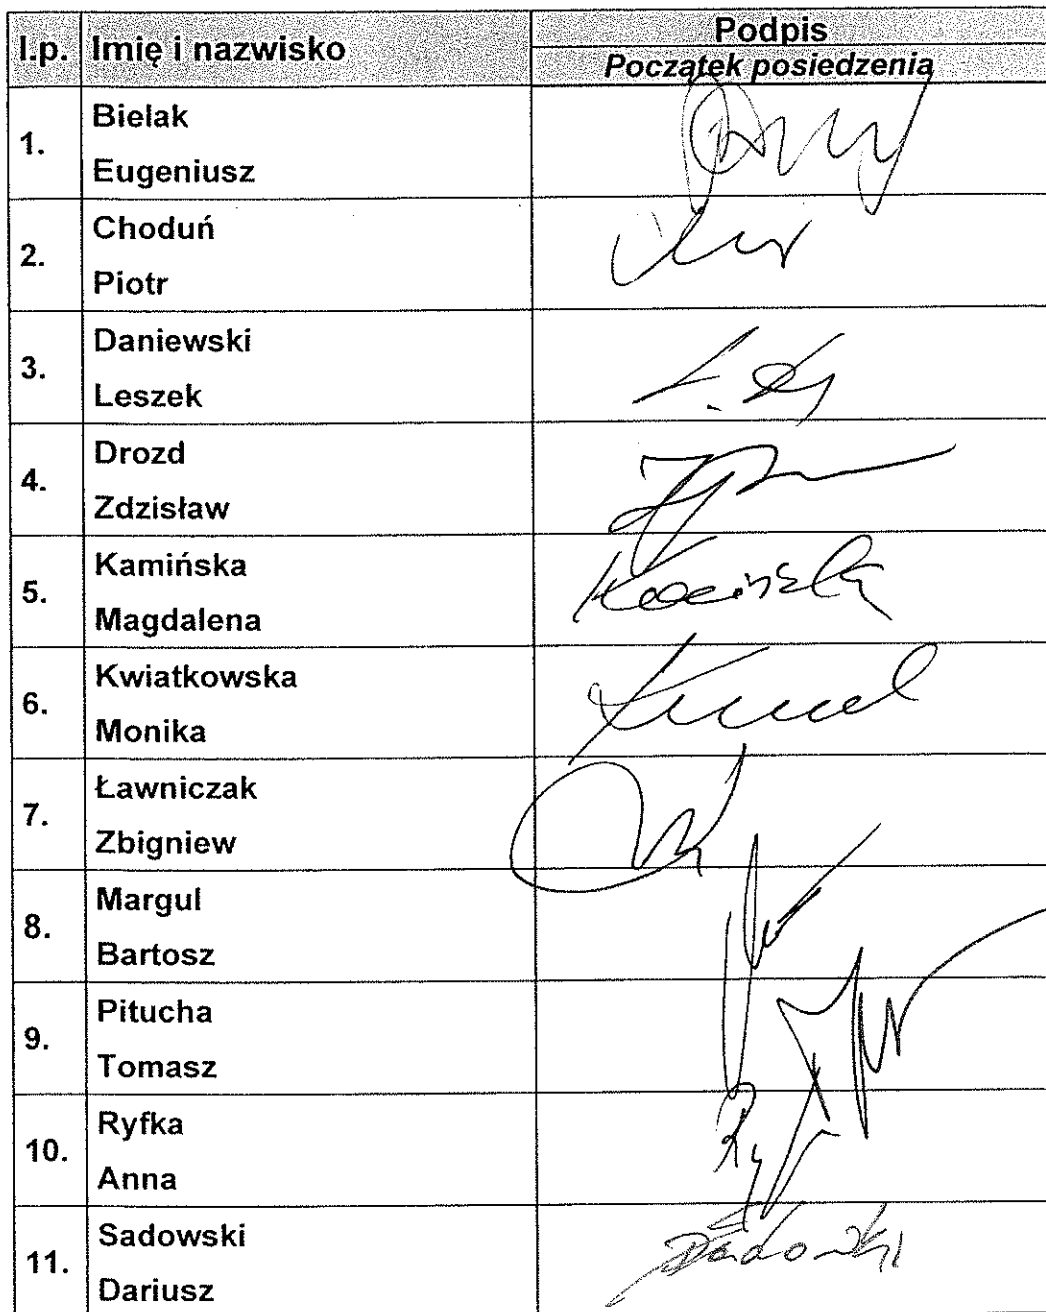 l.p. Imię i nazwisko Podpis
Początek posiedzenia
1. Bielak
Eugeniusz
2. Choduń
Piotr
3. Daniewski
Leszek
4. Drozd
Zdzisław
5. Kamińska
Magdalena
6. Kwiatkowska
Monika
7. Ławniczak
Zbigniew
8. Margul
Bartosz
9. Pitucha
Tomasz
10. Ryfka
Anna
11. Sadowski
Dariusz